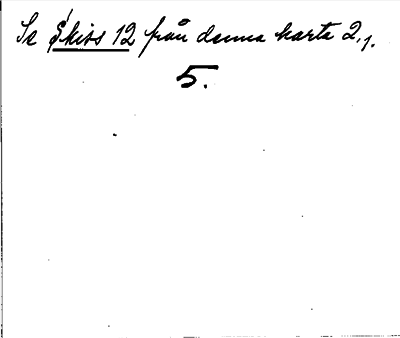 Se Skiss 12 från denna karta 2.1.
5.